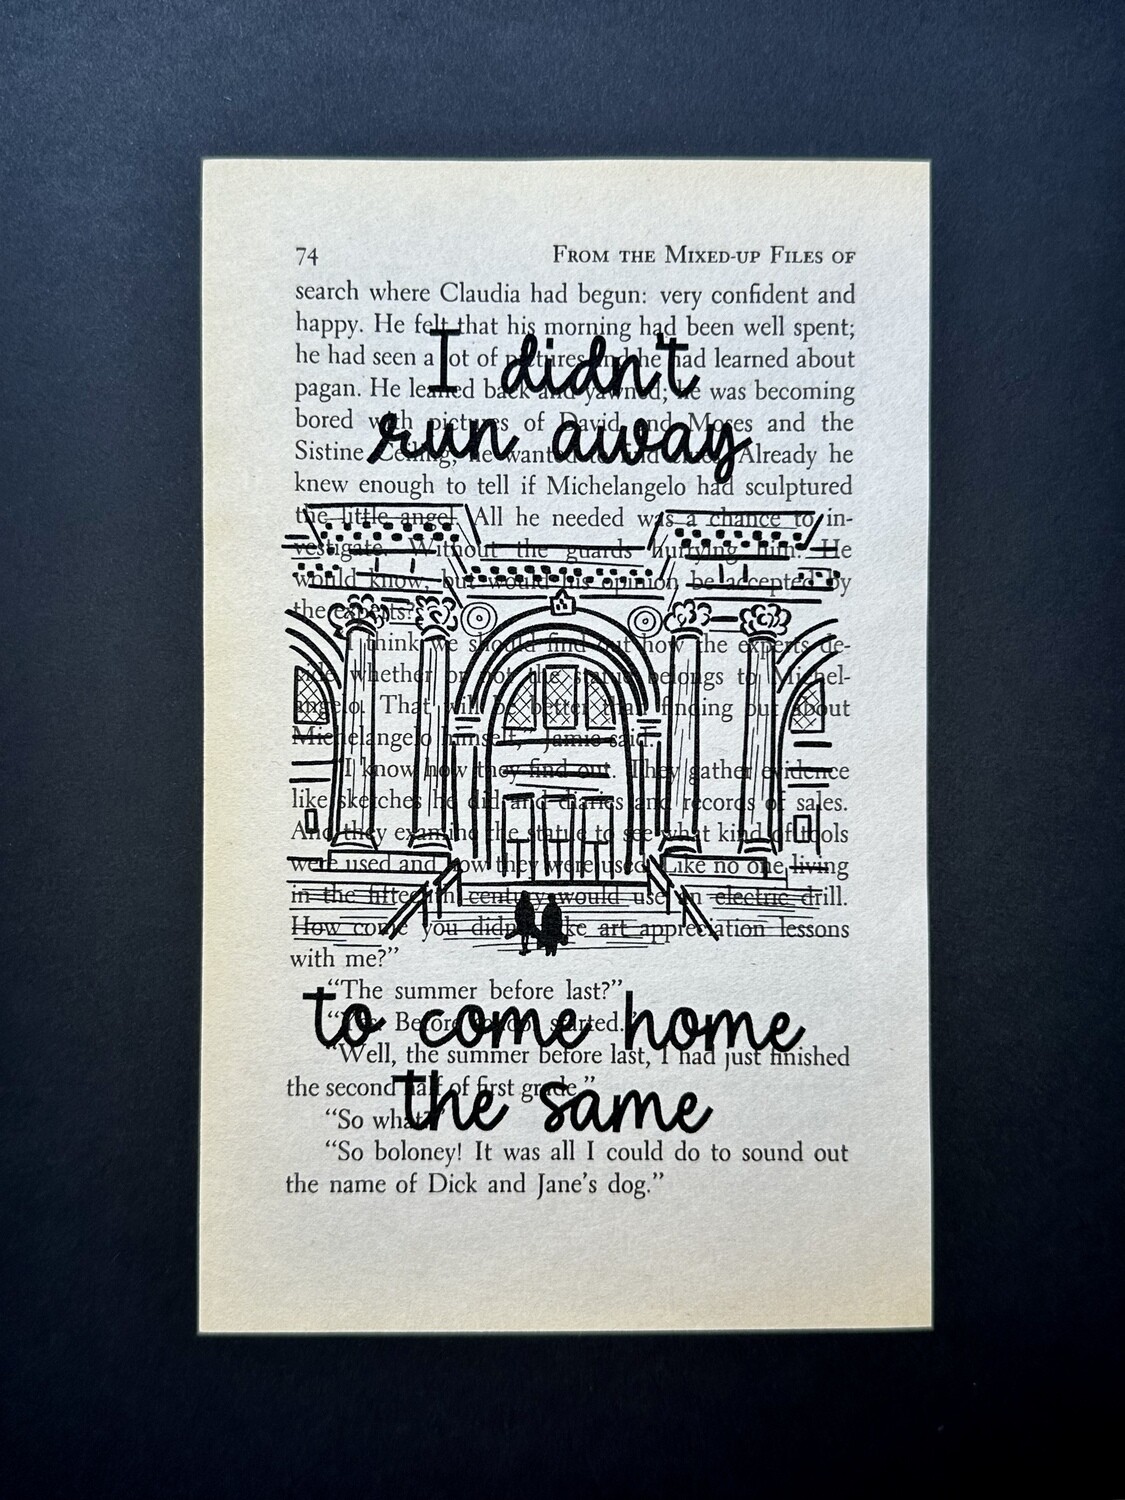 74 FROM THE MIXED-UP FILES OF
search where Claudia had begun: very confident and
happy. He felt that his morning had been well spent;
he had seen a lot of pictures and he had learned about
I didn't
pagan. He leaned back and yawned; he was becoming
bored with pictures of David and Moses and the
run away
Sistine Ceiling; he wanted to find clues. Already he
knew enough to tell if Michelangelo had sculptured
the little angel. All he needed was a chance to in-
vestigate. Without the guards hurrying him. He
would know, but would his opinion be accepted by
the experts?
think we should find out how the experts de-
cide whether or not the statue belongs to Michel-
angelo. That will be better than finding out about
Michelangelo himself," Jamie said.
"I know how they find out. They gather evidence
like sketches he did and diaries and records of sales.
And they examine the statue to see what kind of tools
were used and how they were used. Like no one living
in the fifteenth century would use an electric drill.
How come you didn't take art appreciation lessons
with me?"
"The summer before last?"
to come home
"Yes. Before school started."
"Well, the summer before last, I had just finished
the second half of first grade."
the same
"So what?"
"So boloney! It was all I could do to sound out
the name of Dick and Jane's dog."